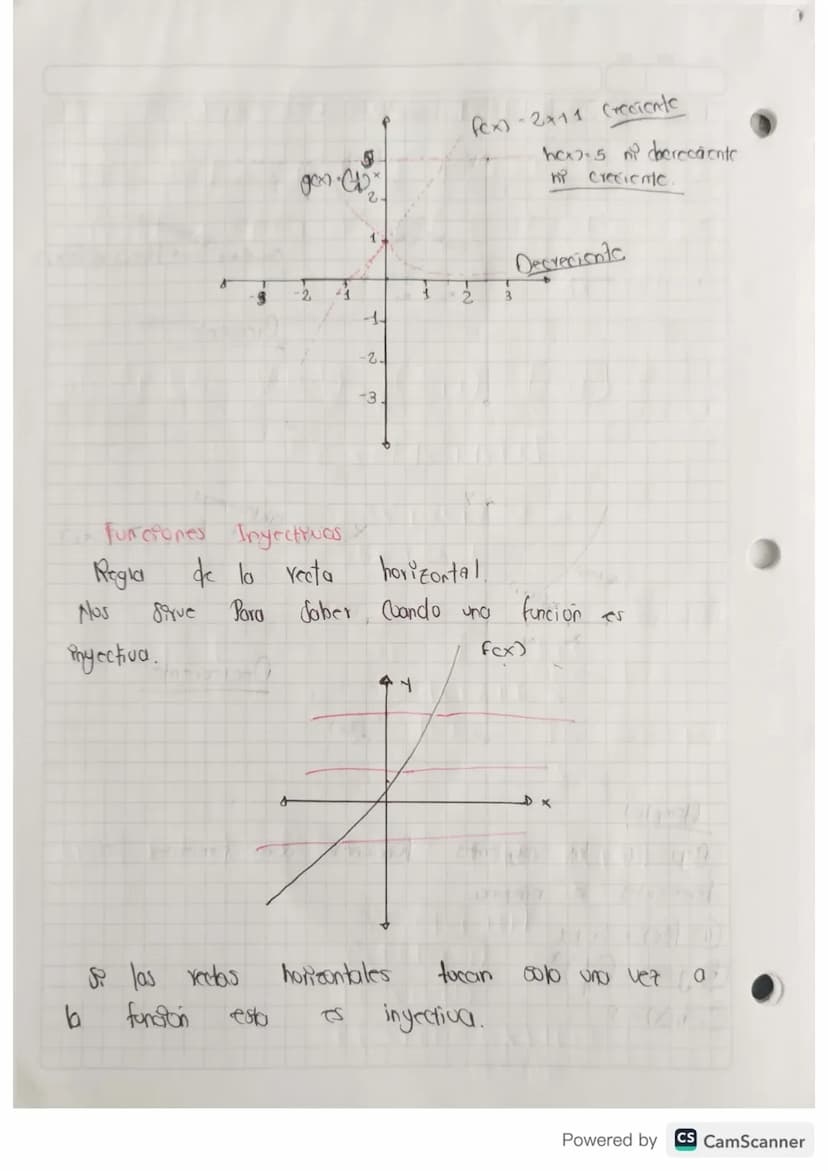 f(x) = 2x+1 Creciente
h(x) = 5 ni decreciente
ni creciente.
5
g(x) = (1/2)^x
2
1
Decreciente
-3 -2 -1 1 2 3
-1
-2
-3
Funciones Inyectivas
Regla de la recta horizontal.
Nos sirve Para saber Cuando una función es
inyectiva.
f(x)
Y
X
Si las rectas horizontales tocan solo una vez a
la función esto es inyectiva.
Powered by CS CamScanner